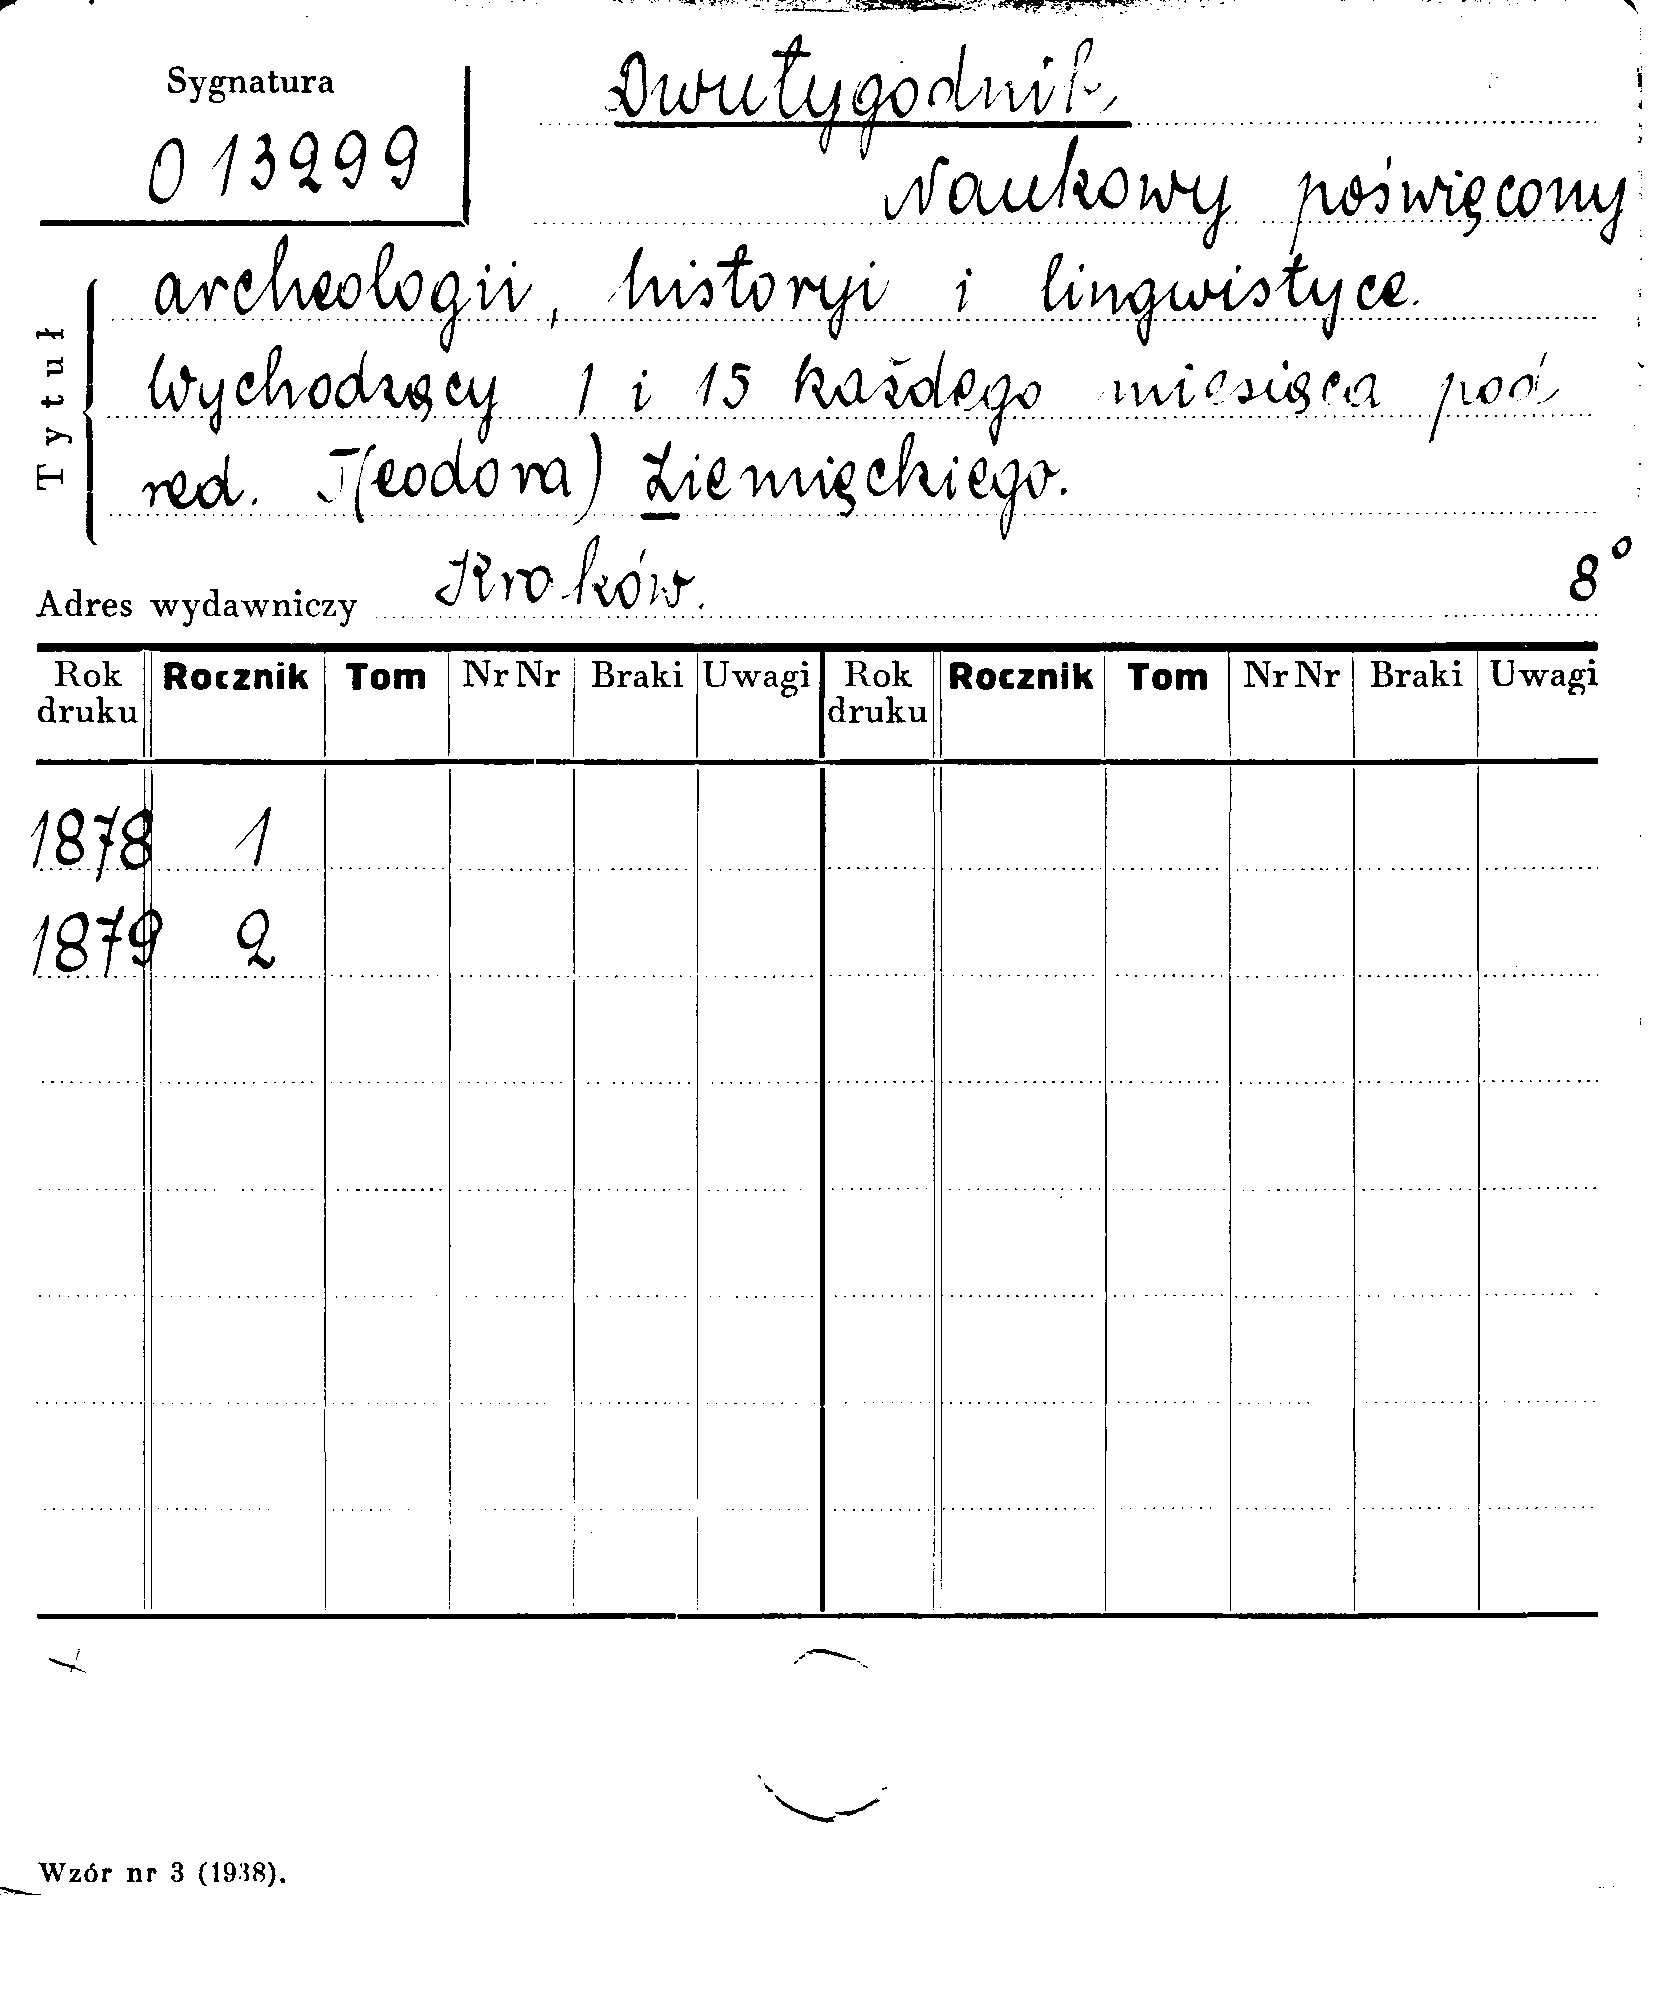 Sygnatura
O 13299
Dwutygodnik
Naukowy poświęcony
archeologii, historyi i lingwistyce.
Wychodzący 1 i 15 każdego miesiąca pod
red. T(eodora) Ziemięckiego.
Tytuł
Adres wydawniczy Kraków. 8°
Rok druku Rocznik Tom Nr Nr Braki Uwagi Rok druku Rocznik Tom Nr Nr Braki Uwagi
1878 1
1879 2
Wzór nr 3 (1938).